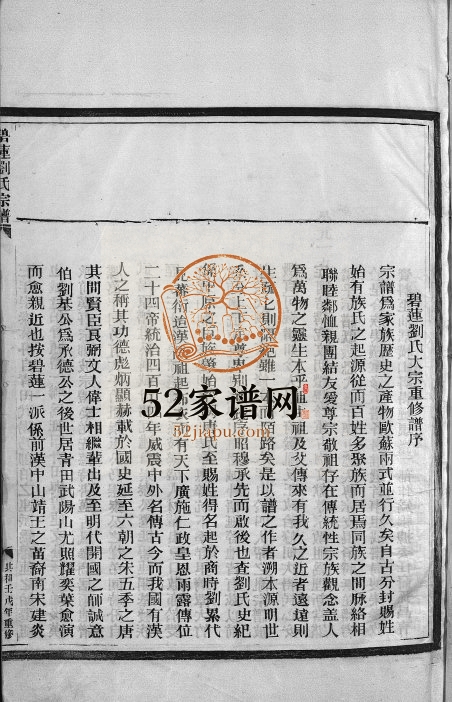 碧蓮劉氏大宗重修譜序
宗譜爲家族歷史之產物歐蘇兩式並行久矣自古分封賜姓
始有族氏之起源從而百姓多聚族而居焉同族之間脉絡相
聯睦鄰恤親團結友愛尊宗敬祖存在傳統性宗族觀念盖人
爲萬物之靈生本乎祖祖及父傳來有我久之近者遠遠則
生疏之則路矣是以譜之作者溯本源明世
系分上下昭穆承先而啟後也查劉氏史紀
氏至賜姓得名起於商時劉累代
有天下廣施仁政皇恩雨露傳位
二十四帝統治四百年威震中外名傳古今而我國有漢
人之稱其功德彪炳顯赫載於國史延至六朝之宋五季之唐
其間賢臣良弼文人偉士相繼輩出及至明代開國之師誠意
伯劉基公爲承德公之後世居青田武陽山尤照耀奕葉愈演
而愈親近也按碧蓮一派係前漢中山靖王之苗裔南宋建炎
碧蓮劉氏宗譜
共和壬戌年重修
52家谱网
52jiapu.com